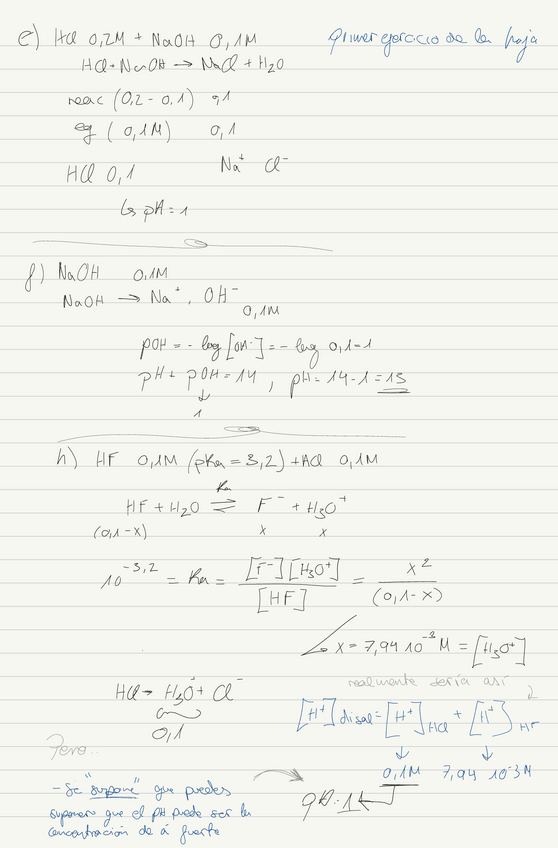 e) HCl 0,2M + NaOH 0,1M
primer ejercicio de la hoja
HCl + NaOH → NaCl + H2O
reac (0,2 - 0,1) 0,1
eq ( 0,1M) 0,1
HCl 0,1 Na⁺ Cl⁻
↳ pH = 1
f) NaOH 0,1M
NaOH → Na⁺, OH⁻
0,1M
pOH = - log [OH⁻] = - log 0,1 = 1
pH + pOH = 14 , pH = 14 - 1 = 13
↓
1
h) HF 0,1M (pKa = 3,2) + HCl 0,1M
Ka
HF + H2O ⇌ F⁻ + H3O⁺
(0,1-x) x x
10^-3,2 = Ka = [F⁻][H3O⁺] / [HF] = x² / (0,1-x)
x = 7,94 10^-3 M = [H3O⁺]
realmente sería así
HCl → H3O⁺ + Cl⁻
0,1
[H⁺] disol = [H⁺] HCl + [H⁺] HF
↓ ↓
0,1M 7,94 10^-3 M
Pero...
pH = 1
- Se "supone" que puedes
suponer que el pH puede ser la
concentración de á fuerte